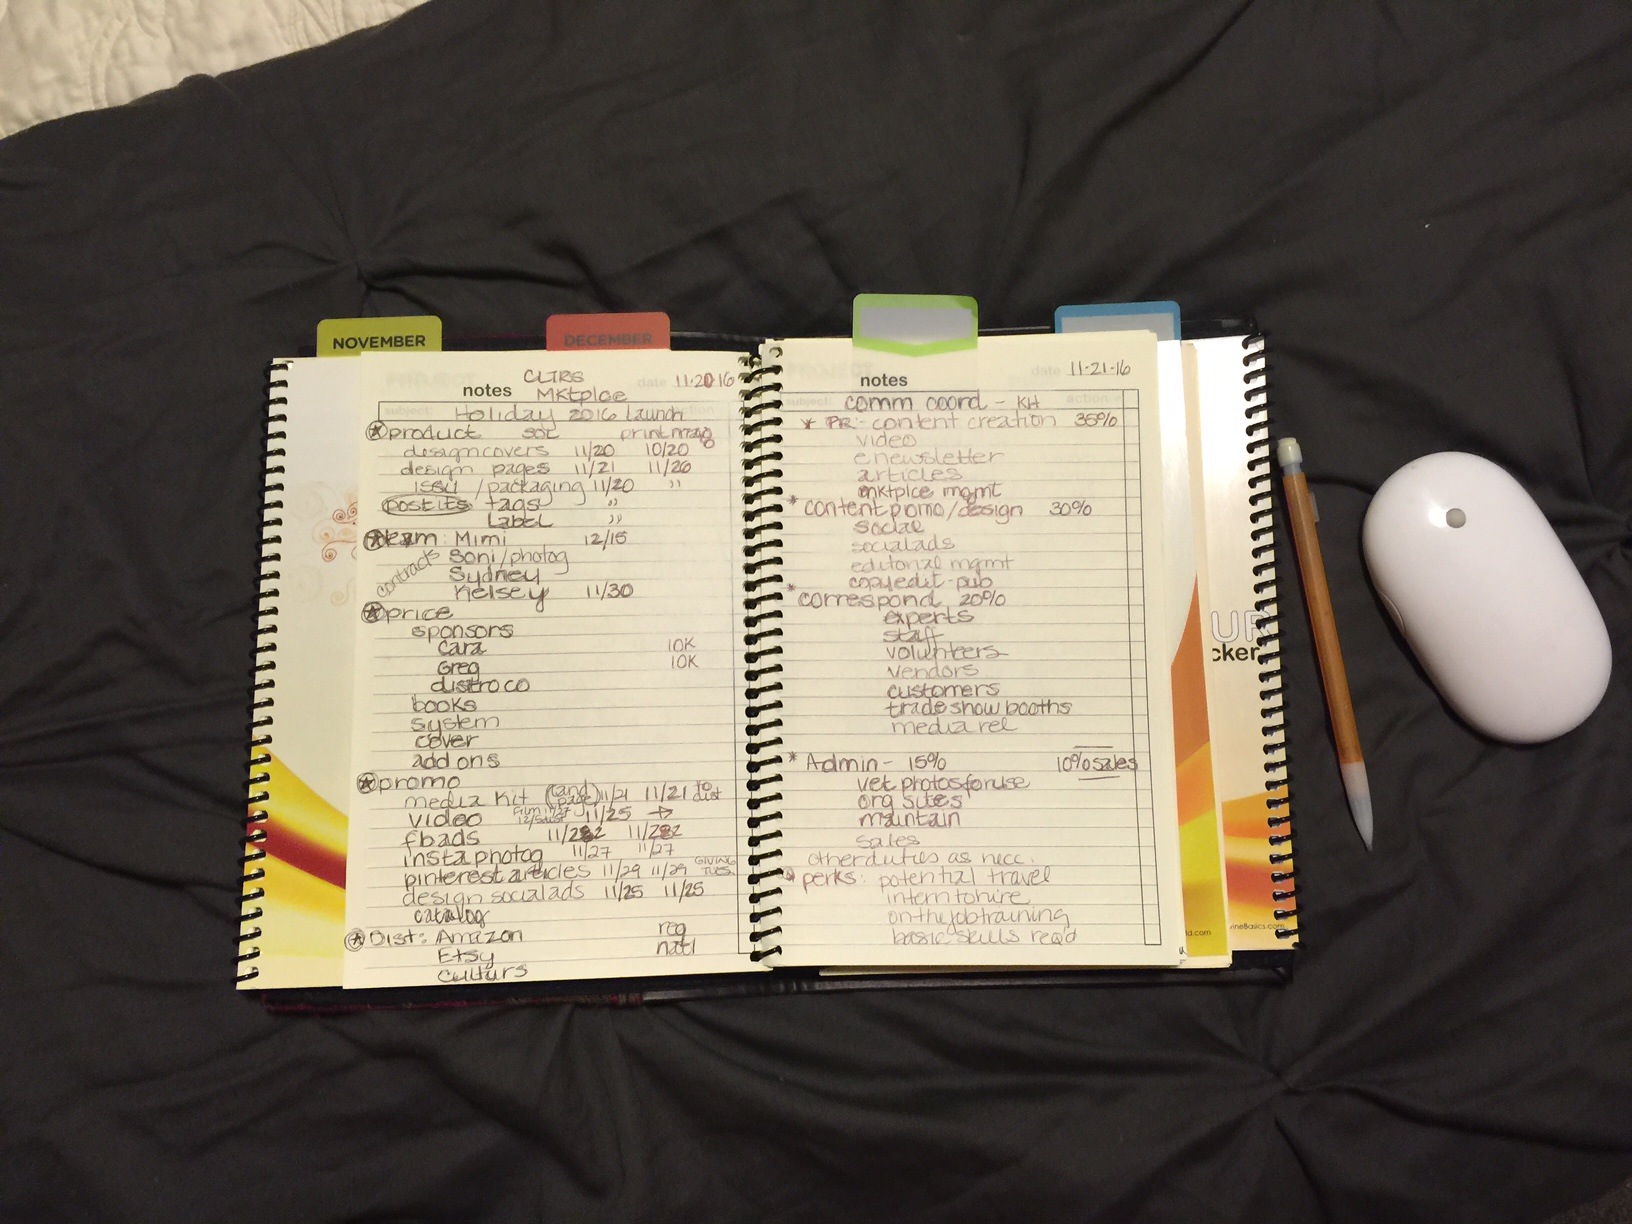 NOVEMBER
DECEMBER
CLTRS
notes MKtplce
date 11-20-16
subject: Holiday 2016 Launch
product
design covers 11/20 10/20
design pages 11/21 11/26
issu / packaging 11/20 "
post its tags "
Label "
team: Mimi 12/15
contract Soni/photog
Sydney
Kelsey 11/30
price
sponsors
Cara 10K
Greg 10K
distro co
books
system
cover
add ons
promo
media kit (land page) 11/21 11/21 to dist
video 11/25 →
fb ads
insta photog 11/27 11/27
pinterest articles 11/29 11/29 GIVING TUES.
design social ads 11/25 11/25
catalog
Dist: Amazon reg
Etsy natl
Culturs
notes
date 11-21-16
comm coord - KH
* PR - content creation 35%
video
enewsletter
articles
mktplce mgmt
* content promo/design 30%
social
social ads
editorial mgmt
copy edit - pub
* correspond 20%
experts
staff
volunteers
vendors
customers
trade show booths
media rel
* Admin - 15% 10% sales
vet photos for use
org sites
maintain
sales
other duties as necc.
perks: potential travel
intern to hire
on the job training
basic skills req'd
UP
cker